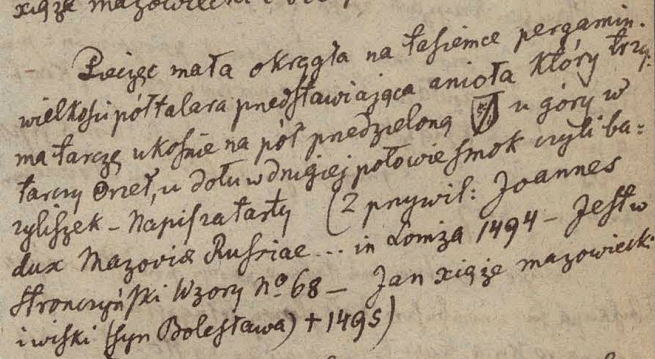 xiąże mazowiecki
Pieczęć mała okrągła na tasiemce pergamin.
wielkości półtalara przedstawiająca anioła który trzy:
ma tarczę ukośnie na pół przedzieloną u góry w
tarczy Orzeł, u dołu w drugiej połowie smok czyli ba:
zyliszek – Napis zatarty (z przywil: Joannes
dux Mazoviæ Russiae ... in Lomza 1494 – Jest w
Stronczyński Wzory No 68 – Jan xiąże mazowiecki
i wiski (syn Bolesława) + 1495)